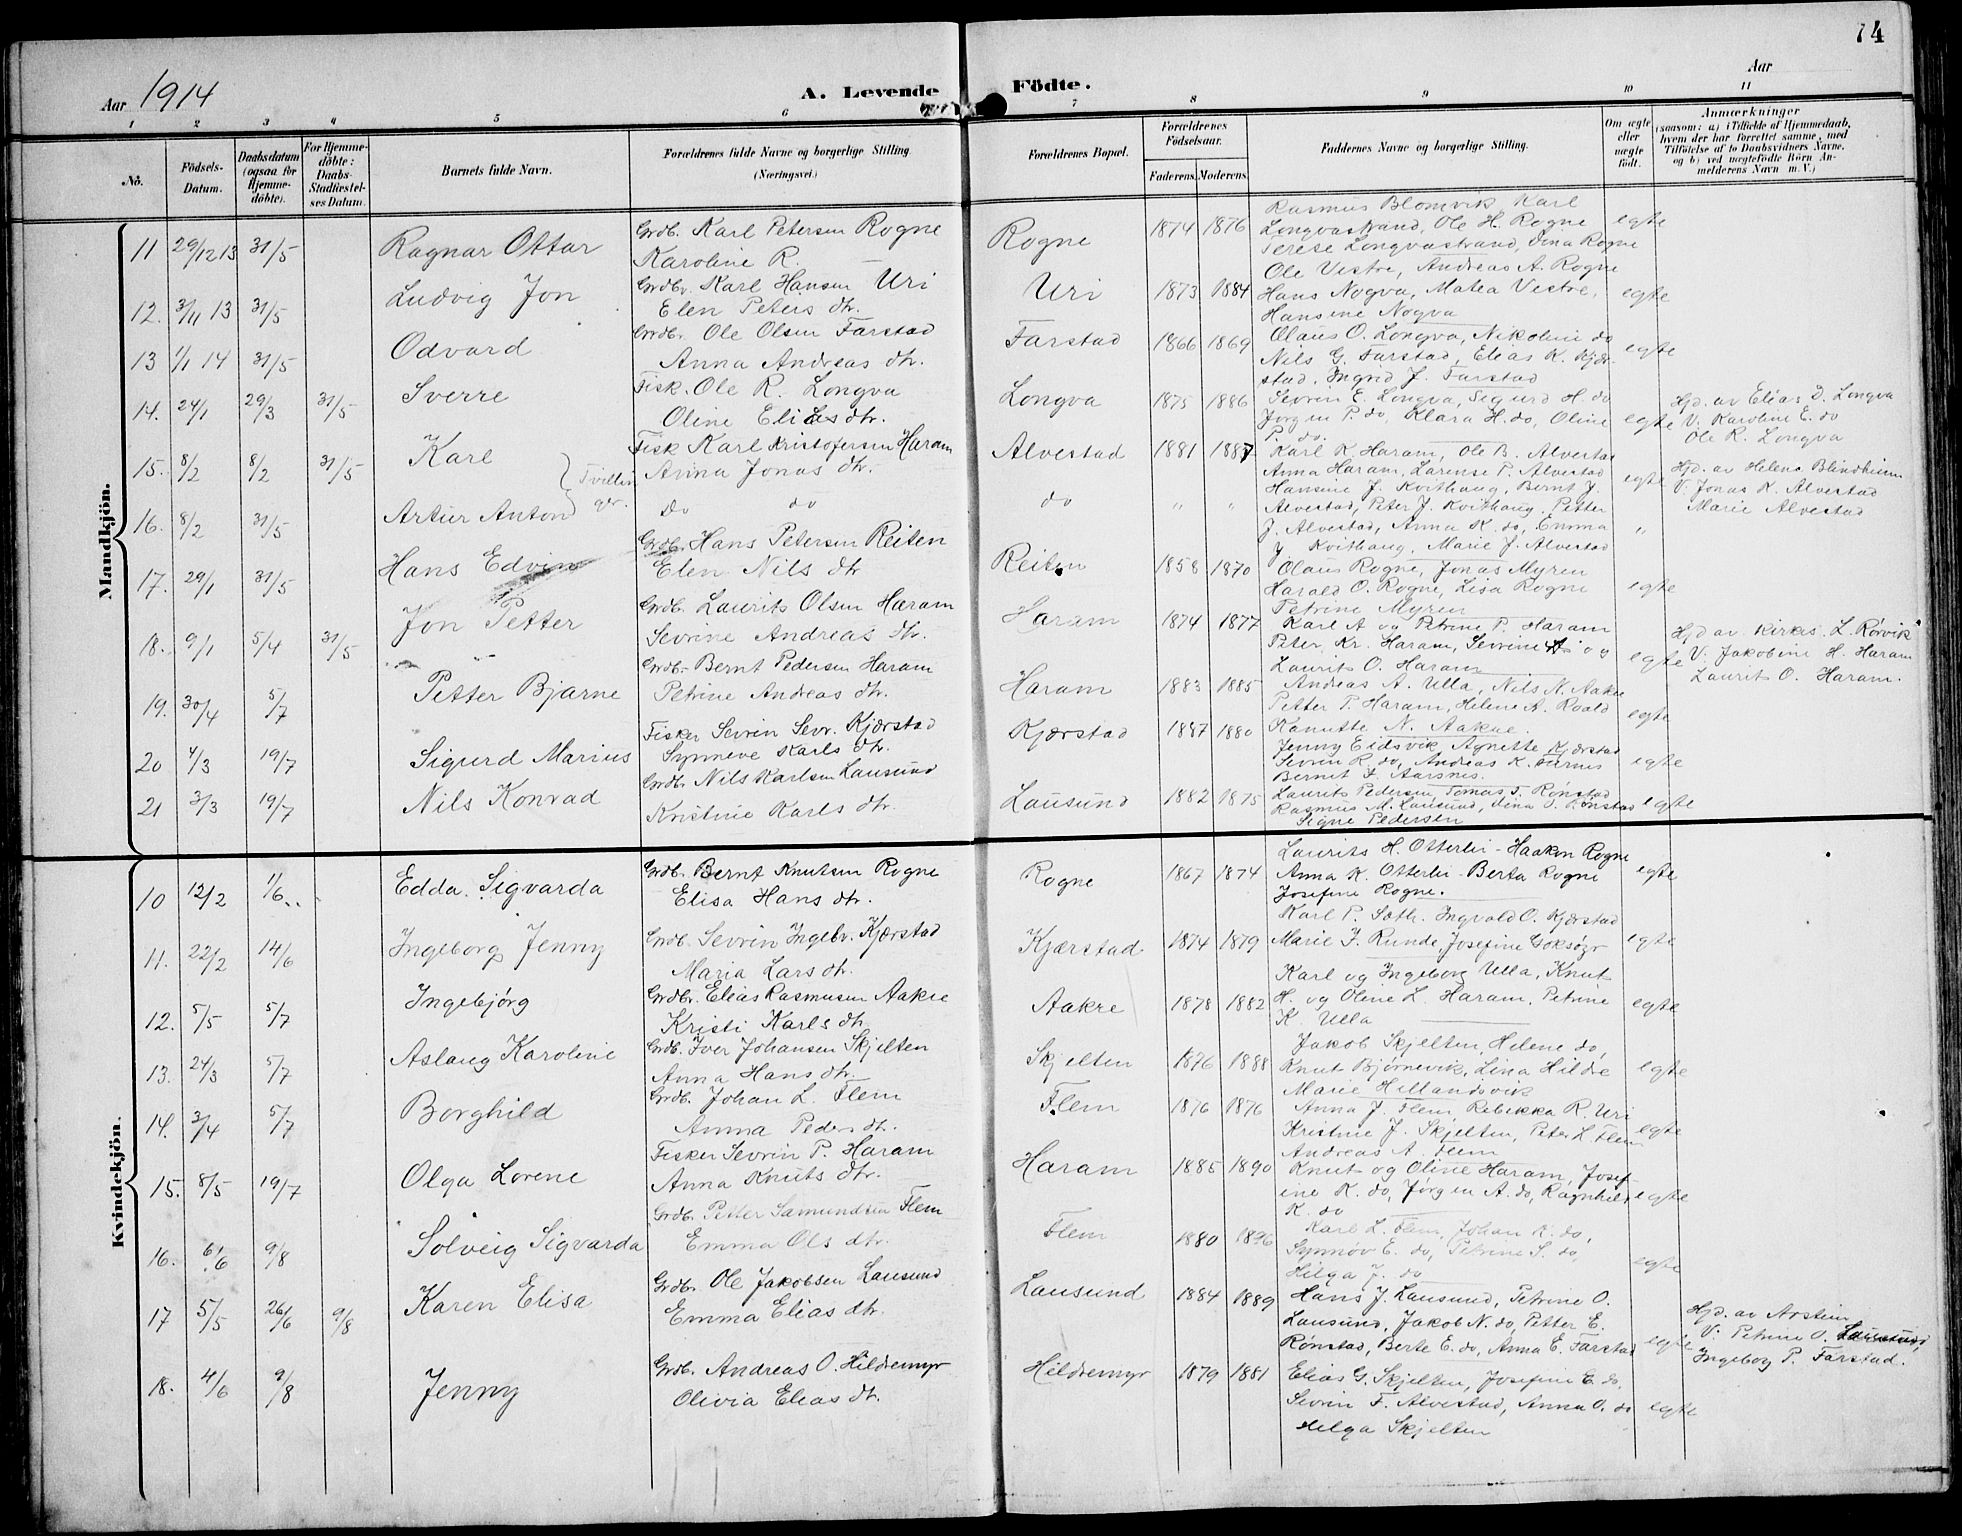 74
Aar 1914
A. Levende Födte.
Aar
1 2 3 4 5 6 7 8 9 10 11
No.
Födsels-Datum.
Daabsdatum (ogsaa for Hjemmedöbte).
For Hjemmedöbte: Daabs-Stadfæstelses Datum.
Barnets fulde Navn.
Forældrenes fulde Navne og borgerlige Stilling. (Næringsvei.)
Forældrenes Bopæl.
Forældrenes Födselsaar.
Faderens. Moderens.
Faddernes Navne og borgerlige Stilling.
Om ægte eller uægte födt.
Anmærkninger (saasom: a) i Tilfælde af Hjemmedaab, hvem der har forrettet samme, med Tilföielse af to Daabsvidners Navne, og b) ved uægtefödte Börn Anmelderens Navn m.V.)
Mandkjön.
11 29/12 13 31/5 Ragnar Ottar Grdb. Karl Petersen Rogne
Karoline R. Rogne 1874 1876
Rasmus Blomvik, Karl
Longvastrand, Ole H. Rogne
Terese Longvastrand, Dina Rogne
egte
12. 3/11 13 31/5 Ludvig Jon Grdbr. Karl Hansen Uri
Elen Peters dtr. Uri 1873 1884
Ole Vestre, Andreas A. Rogne
Hans Nogva, Matea Vestre,
Hansine Nogva
egte
13 1/1 14 31/5 Odvard Grdb. Ole Olsen Farstad
Anna Andreas dtr. Farstad 1866 1869
Olaus O. Longva, Nikoline do
Nils G. Farstad, Elias K. Kjær-
stad, Ingrid J. Farstad
egte
14. 24/1 29/3 31/5 Sverre Fisk. Ole R. Longva
Oline Elias dtr. Longva 1875 1886
Sevrin E. Longva, Sigurd H. do
Jørgen P. do, Klara H. do, Oline
P. do.
egte
Hjd. av Elias D. Longva
V. Karoline E. do
Ole R. Longva
15. 8/2 8/2 31/5 Karl Tvillin
ger. Fisk Karl Kristofersen Haram
Anna Jonas dtr. Alvestad 1881 1887
Karl K. Haram, Ole B. Alvestad
Anna Haram, Larense P. Alvestad
Hansine J. Kvithaug, Bernt J.
egte
Hjd. av Helena Blindheim
V. Jonas K. Alvestad
Marie Alvestad
16. 8/2 31/5 Artur Anton Do do do " "
Alvestad, Peter J. Kvithaug, Petter
J. Alvestad, Anna K. do, Emma
J. Kvithaug, Marie J. Alvestad
"
17. 29/1 31/5 Hans Edvin Grdb. Hans Petersen Reiten
Elen Nils dtr Reiten 1858 1870
Olaus Rogne, Jonas Myren
Harald O. Rogne, Lisa Rogne
Petrine Myren
egte
18. 9/1 5/4 31/5 Jon Petter Grdb. Laurits Olsen Haram
Sevrine Andreas dtr. Haram 1874 1877
Karl A og Petrine P. Haram
Peter Kr. Haram, Sevrine A og
Laurits O. Haram
egte
Hjd av Kirkes. L. Rørvik
V. Jakobine H. Haram
Laurits O. Haram.
19. 30/4 5/7 Petter Bjarne Grdb. Bernt Pedersen Haram
Petrine Andreas dtr. Haram 1883 1885
Andreas A. Ulla, Nils N. Aakre
Petter P. Haram, Helene A. Roald
Kanutte N. Aakre.
egte
20 4/3 19/7 Sigurd Marius Fisker Sevrin Sevr. Kjærstad
Synneve Karls dtr. Kjærstad 1887 1880
Jenny Eidsvik, Agnette Kjærstad
Sevrin R. do, Andreas K. Furnes
Bernt F. Aarsnes.
egte
21 3/3 19/7 Nils Konrad Grdb. Nils Karlsen Lausund
Kristine Karls dtr. Lausund 1882 1875
Laurits Pedersen, Tomas T. Rønstad
Rasmus M. Lausund, Dina O. Rønstad
Signe Pedersen
egte
Kvindekjön.
10 12/2 1/6 Edda Sigvarda Grdb. Bernt Knutsen Rogne
Elisa Hans dtr. Rogne 1867 1874
Laurits H. Otterlei - Haakon Rogne
Anna K. Otterlei - Berta Rogne
Josefine Rogne.
egte
11. 22/2 14/6 Ingeborg Jenny Grdb. Sevrin Ingebr. Kjærstad
Maria Lars dtr. Kjærstad 1874 1879
Karl P. Sæth. Ingvald O. Kjærstad
Marie J. Runde, Josefine Goksøyr
egte
12. 5/5 5/7 Ingebjørg Grdbr. Elias Rasmusen Aakre
Kristi Karls dtr. Aakre 1878 1882
Karl og Ingeborg Ulla, Knut
H. og Oline L. Haram, Petrine
K. Ulla
egte
13. 24/3 5/7 Aslaug Karoline Grdb. Iver Johansen Skjelten
Anna Hans dtr. Skjelten 1876 1888
Jakob Skjelten, Helene do,
Knut Bjørnevik, Lina Hildre
Marie Hellandsvik
egte
14. 3/4 5/7 Borghild Grdb. Johan L. Flem
Anna Peders dt. Flem 1876 1876
Anna J. Flem, Rebekka R. Uri
Kristine J. Skjelten, Peter L. Flem
Andreas A. Flem
egte
15. 8/5 19/7 Olga Lorene Fisker Sevrin P. Haram
Anna Knuts dtr. Haram 1885 1890
Knut og Oline Haram, Josef-
ine K. do, Jørgen A. do, Ragnhild
K. do
egte
16. 6/6 9/8 Solveig Sigvarda Grdb. Petter Samundsen Flem
Emma Ols dtr. Flem 1880 1896
Karl L. Flem, Johan K. do,
Synnøv E. do, Petrine S. do,
Hilga J. do
egte
17 5/5 26/6 9/8 Karen Elisa Grdb. Ole Jakobsen Lausund
Emma Elias dtr. Lausund 1884 1889
Hans J. Lausund, Petrine O.
Lausund, Jakob N. do, Petter E.
Rønstad, Berte E. do, Anna E. Farstad
egte
Hjd. av Arstein
V. Petrine O. Lausund,
Ingeborg P. Farstad.
18. 4/6 9/8 Jenny Grdb. Andreas O. Hildremyr
Olivia Elias dtr. Hildremyr 1879 1881
Elias G. Skjelten, Josefine E. do,
Sevrin F. Alvestad, Anna O. do
Helga Skjelten
egte